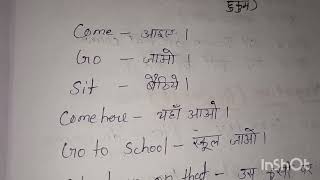 हुकुम)
Come – आइए ।
Go – जाओ ।
Sit – बैठिये ।
Come here – यहाँ आओ ।
Go to School – स्कूल जाओ ।
that – उस
InShOt